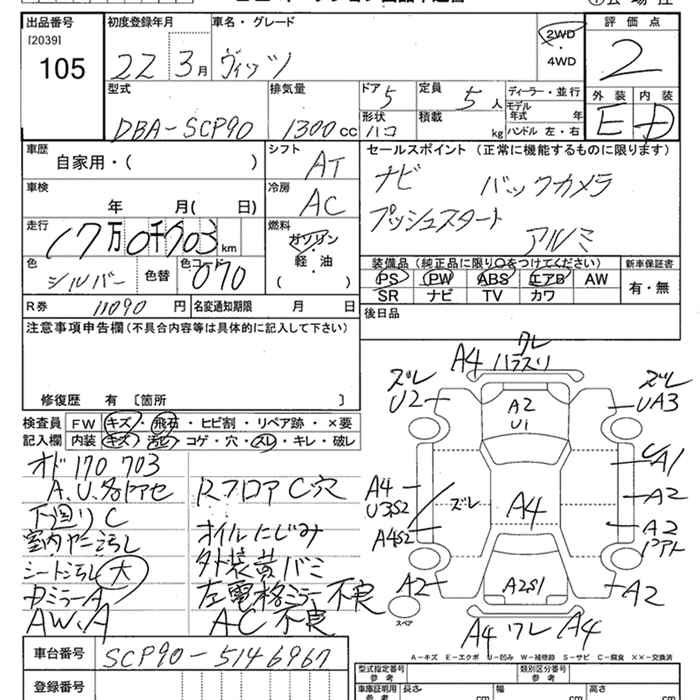 出品番号 初度登録年月 車名・グレード 評価点
[2039]
105 22 3月 ヴィッツ 2WD・4WD 2
型式 排気量 ドア 5 定員 5人 ディーラー・並行 外装 内装
DBA-SCP90 1300cc 形状 ハコ 積載 kg モデル年式 年 ハンドル 左・右 E D
車歴 自家用・( ) シフト AT セールスポイント (正常に機能するものに限ります)
車検 年 月( 日) 冷房 AC ナビ バックカメラ
走行 17万0千703km 燃料 ガソリン 軽・油 ( ) プッシュスタート アルミ
色 シルバー 色替 色コード 070 装備品 (純正品に限り○をつけてください) 新車保証書
PS PW ABS エアB AW 有・無
SR ナビ TV カワ
R券 11090円 名変通知期限 月 日 後日品
注意事項申告欄 (不具合内容等は具体的に記入して下さい)
修復歴 有 [箇所 ]
検査員 FW キズ・飛石・ヒビ割・リペア跡・×要
記入欄 内装 キズ・汚ビ・コゲ・穴・スレ・キレ・破レ
オド170703
A.U.多ドアセ Rフロア C穴
下回り C オイルにじみ
室内ヤニ汚レ 外装黄バミ
シート汚レ 大 左電格ミラー不良
DミラーA
AW.A AC不良
ワレ
A4 ハラスリ
ズレ U2 ズレ UA3
A2 U1
A1
A4 U3S2 ズレ A4 A2
A4S2 A2
A2 A2S1 A2
スペア
A4 ワレ A4
A−キズ E−エクボ U−凹み W−補修跡 S−サビ C−腐食 ××−交換済
車台番号 SCP90-5146967
登録番号
型式指定番号 類別区分番号
車庫証明用 長さ cm 幅 cm 高さ cm